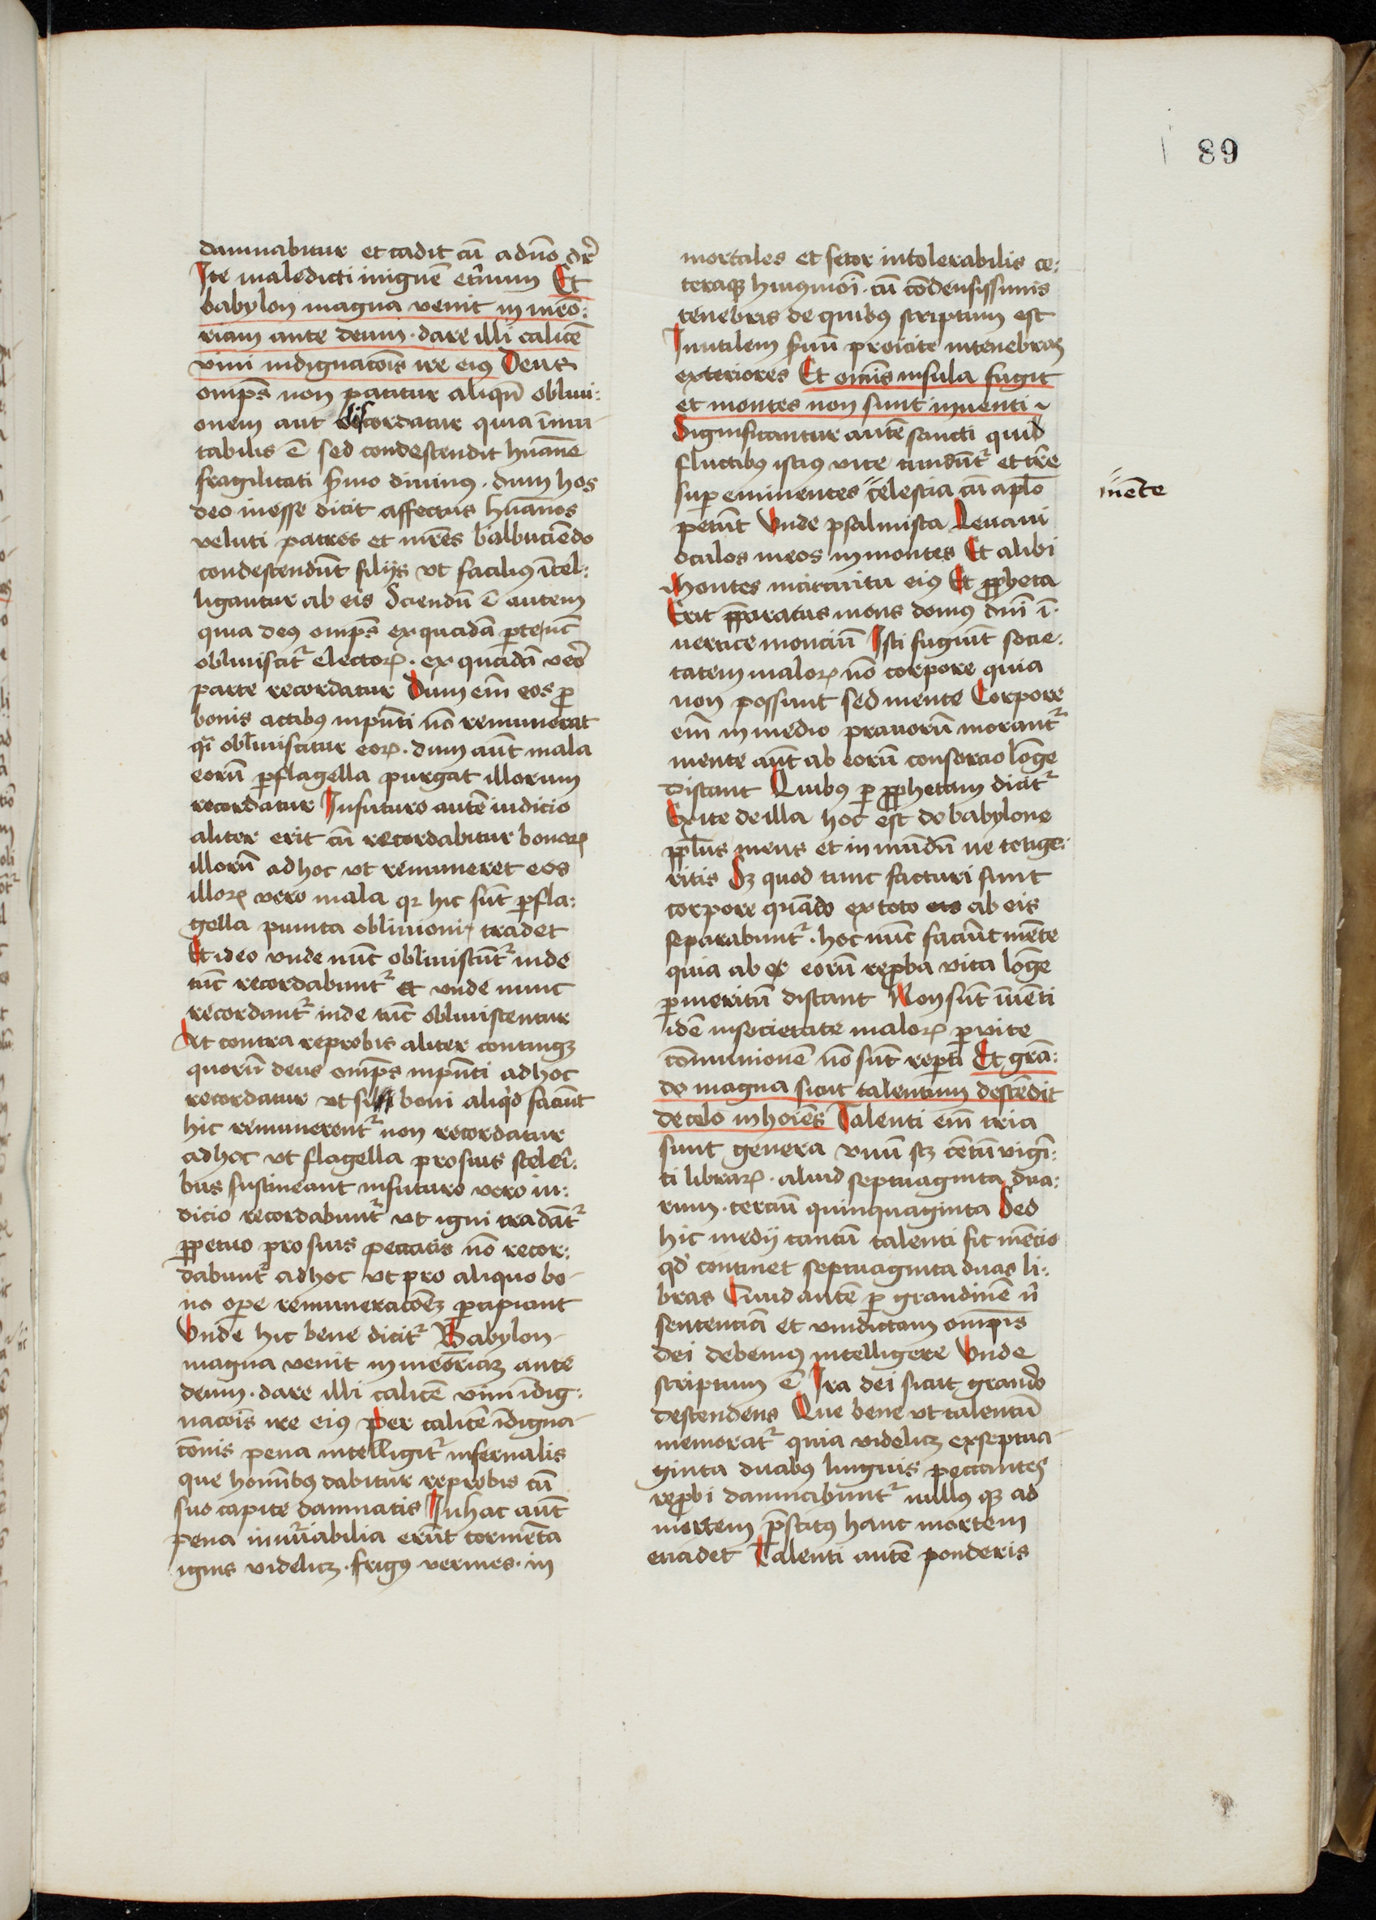 89
damnabitur et cadit cū a dn̄o dr̄
Ite maledicti in ignē et̄num Et
babylon magna venit in meō:
riam ante deum · dare illi calicē
vini indignacōis ire eius Deus
omp̄s non patitur aliqn̄ obliui:
onem aut discordatur quia īmu
tabilis ē sed condescendit huāne
fragilitati s̄mo diuinus · dum hos
deo inesse dicit affectus huānos
veluti patres et mr̄es balbuciēdo
condescendūt filijs vt facilius ītel:
ligantur ab eis Sciendū ē autem
quia deus omp̄s ex quadā parte nūc
obliuiscit᷑ electoꝝ · ex quadā vero
parte recordatur Dum em̄ eos ꝓ
bonis actibus inpn̄ti nō remunerat
q̄i obliuiscitur eoꝝ · dum aūt mala
eorū ꝑ flagella purgat illorum
recordatur In futuro autē iudicio
aliter erit cū recordabitur bonoꝝ
illorū ad hoc vt remuneret eos
illoꝝ vero mala q̄ hic sūt ꝑ fla:
gella punita obliuioni tradet
Et ideo vnde nūc obliuiscūt᷑ inde
tūc recordabunt᷑ et vnde nunc
recordant᷑ inde tūc obliuiscentur
At contra reprobis aliter contingꝫ
quorū deus omp̄s inpn̄ti ad hoc
recordatur vt si boni aliqd̄ faciūt
hic remunerent᷑ non recordatur
ad hoc vt flagella pro suis scelerī:
bus sustineant in futuro vero iu:
dicio recordabunt᷑ vt igni tradāt᷑
ꝑpetuo pro suis peccatis nō recor:
dabunt᷑ ad hoc vt pro aliquo bo-
no ope remuneracōꝫ ꝑcipiant
Vnde hic bene dicit᷑ Babylon
magna venit in meōriaꝫ ante
deum · dare illi calicē vini īdig:
nacōis ire eius Per calicē īdigna-
cōnis pena intelligit᷑ infernalis
que homībꝰ dabitur reprobis cū
suo capite damnatis In hac aūt
pena innūabilia erūt tormēta
ignis videlicꝫ · frigꝰ vermes · in
mortales et fetor intolerabilis ce:
teraqꝫ huiꝰmōi · cū condensissimis
tenebris de quibꝰ scriptum est
Inutilem s̄uū proicite in tenebras
exteriores Et omīs insula fugit
et montes non sunt inuenti ~
Significantur autē sancti qui d
fluctibꝰ istiꝰ vite tundūt᷑ et tr̄e
suꝑ eminentes celestia cū apl̄o
mēte
petūt Vnde psalmista Leuaui
oculos meos in montes Et alibi
Montes in circuitu eiꝰ Et ꝓpheta
Erit p̄paratus mons domꝰ dn̄i ī ·
vertice monciū Isti fugiūt socie:
tatem maloꝝ nō corpore quia
non possunt sed mente Corpore
em̄ in medio prauorū morant᷑
mente aūt ab eorū consorcio lōge
distant Quibꝰ ꝑ ꝓphetam dicit᷑
Exite de illa hoc est de babylone
ppl̄us meus et inmūdū ne tetige:
ritis Sꝫ quod tunc facturi sunt
corpore quādo ex toto eis ab eis
separabunt᷑ · hoc nūc faciūt mēte
quia ab eorū reproba vita lōge
ꝑ meritū distant Non sūt īuēti
idē in societate maloꝝ ꝑ vite
cōmunionē nō sūt reperti Et grā:
do magna sicut talentum descēdit
de celo in hoīes Talenti em̄ tria
sunt genera vnū scꝫ cētū vigī:
ti libraꝝ · aliud septuaginta dua:
rum · terciū quinquaginta Sed
hic medij tantū talenti fit mēcio
qd̄ continet septuaginta duas li:
bras Quid autē ꝑ grandinē n̄
sentenciā et vindictam omp̄tis
dei debemꝰ intelligere Vnde
scriptum ē Ira dei sicut grando
descendens Que bene vt talentū
memorat᷑ quia videlicꝫ ex septua-
ginta duabꝰ linguis peccantes
reprobi damnabunt᷑ nullus qꝫ ad
mortem p̄scitꝰ hanc mortem
euadet Talenti autē ponderis